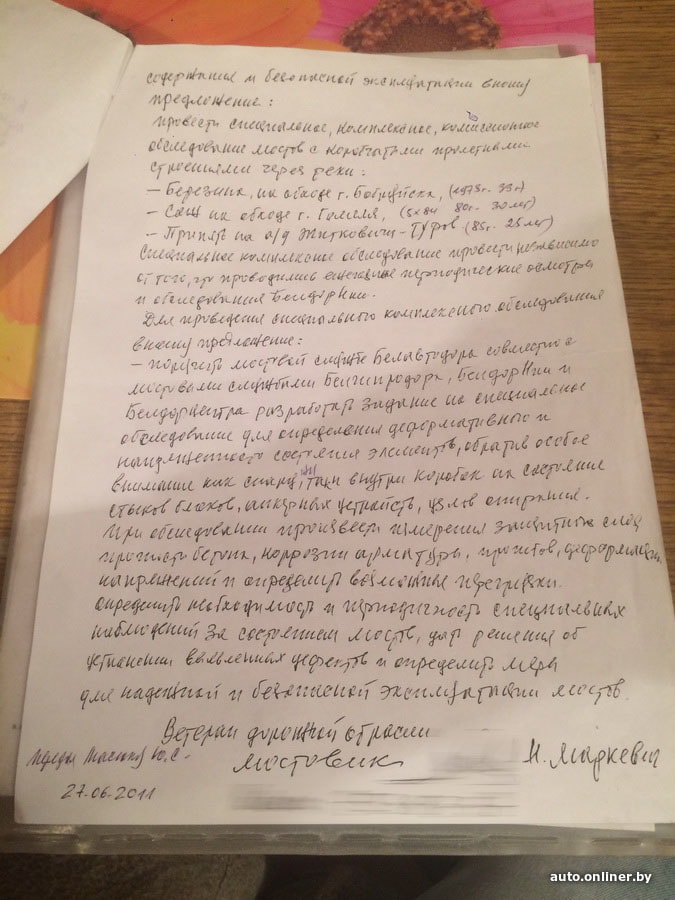 содержания и безопасной эксплуатации вношу
предложение:
провести специальное, комплексное, комиссионное
обследование мостов с коробчатыми пролетными
строениями через реки:
– Березина, на обходе г. Бобруйска, (1973г. 33г)
– Сож на обходе г. Гомеля, (80г. 30лет)
– Припять на а/д Житковичи-Туров (85г. 25лет)
Специальное комплексное обследование провести независимо
от того, что проводились ежегодные периодические осмотры
и обследования БелдорНии.
Для проведения специального комплексного обследования
вношу предложение:
– поручить мостовой службе Белавтодора совместно с
мостовыми службами Белгипродора, БелдорНии и
Белдорцентра разработать задание на специальное
обследование для определения деформативного и
напряженного состояния элементов, обратив особое
внимание как снаружи, так и внутри коробок на состояние
стыков блоков, анкерных устройств, узлов опирания.
При обследовании произвести измерения защитных слоев
прочности бетона, коррозии арматуры, прогибов, деформаций,
напряжений и определить возможные перегрузки.
Определить необходимость и периодичность специальных
наблюдений за состоянием мостов, дать решения об
устранении выявленных дефектов и определить меры
для надежной и безопасной эксплуатации мостов.
Ветеран дорожной отрасли
мостовик Н. Маркевич
Ю.С.
27.06.2011
auto.onliner.by